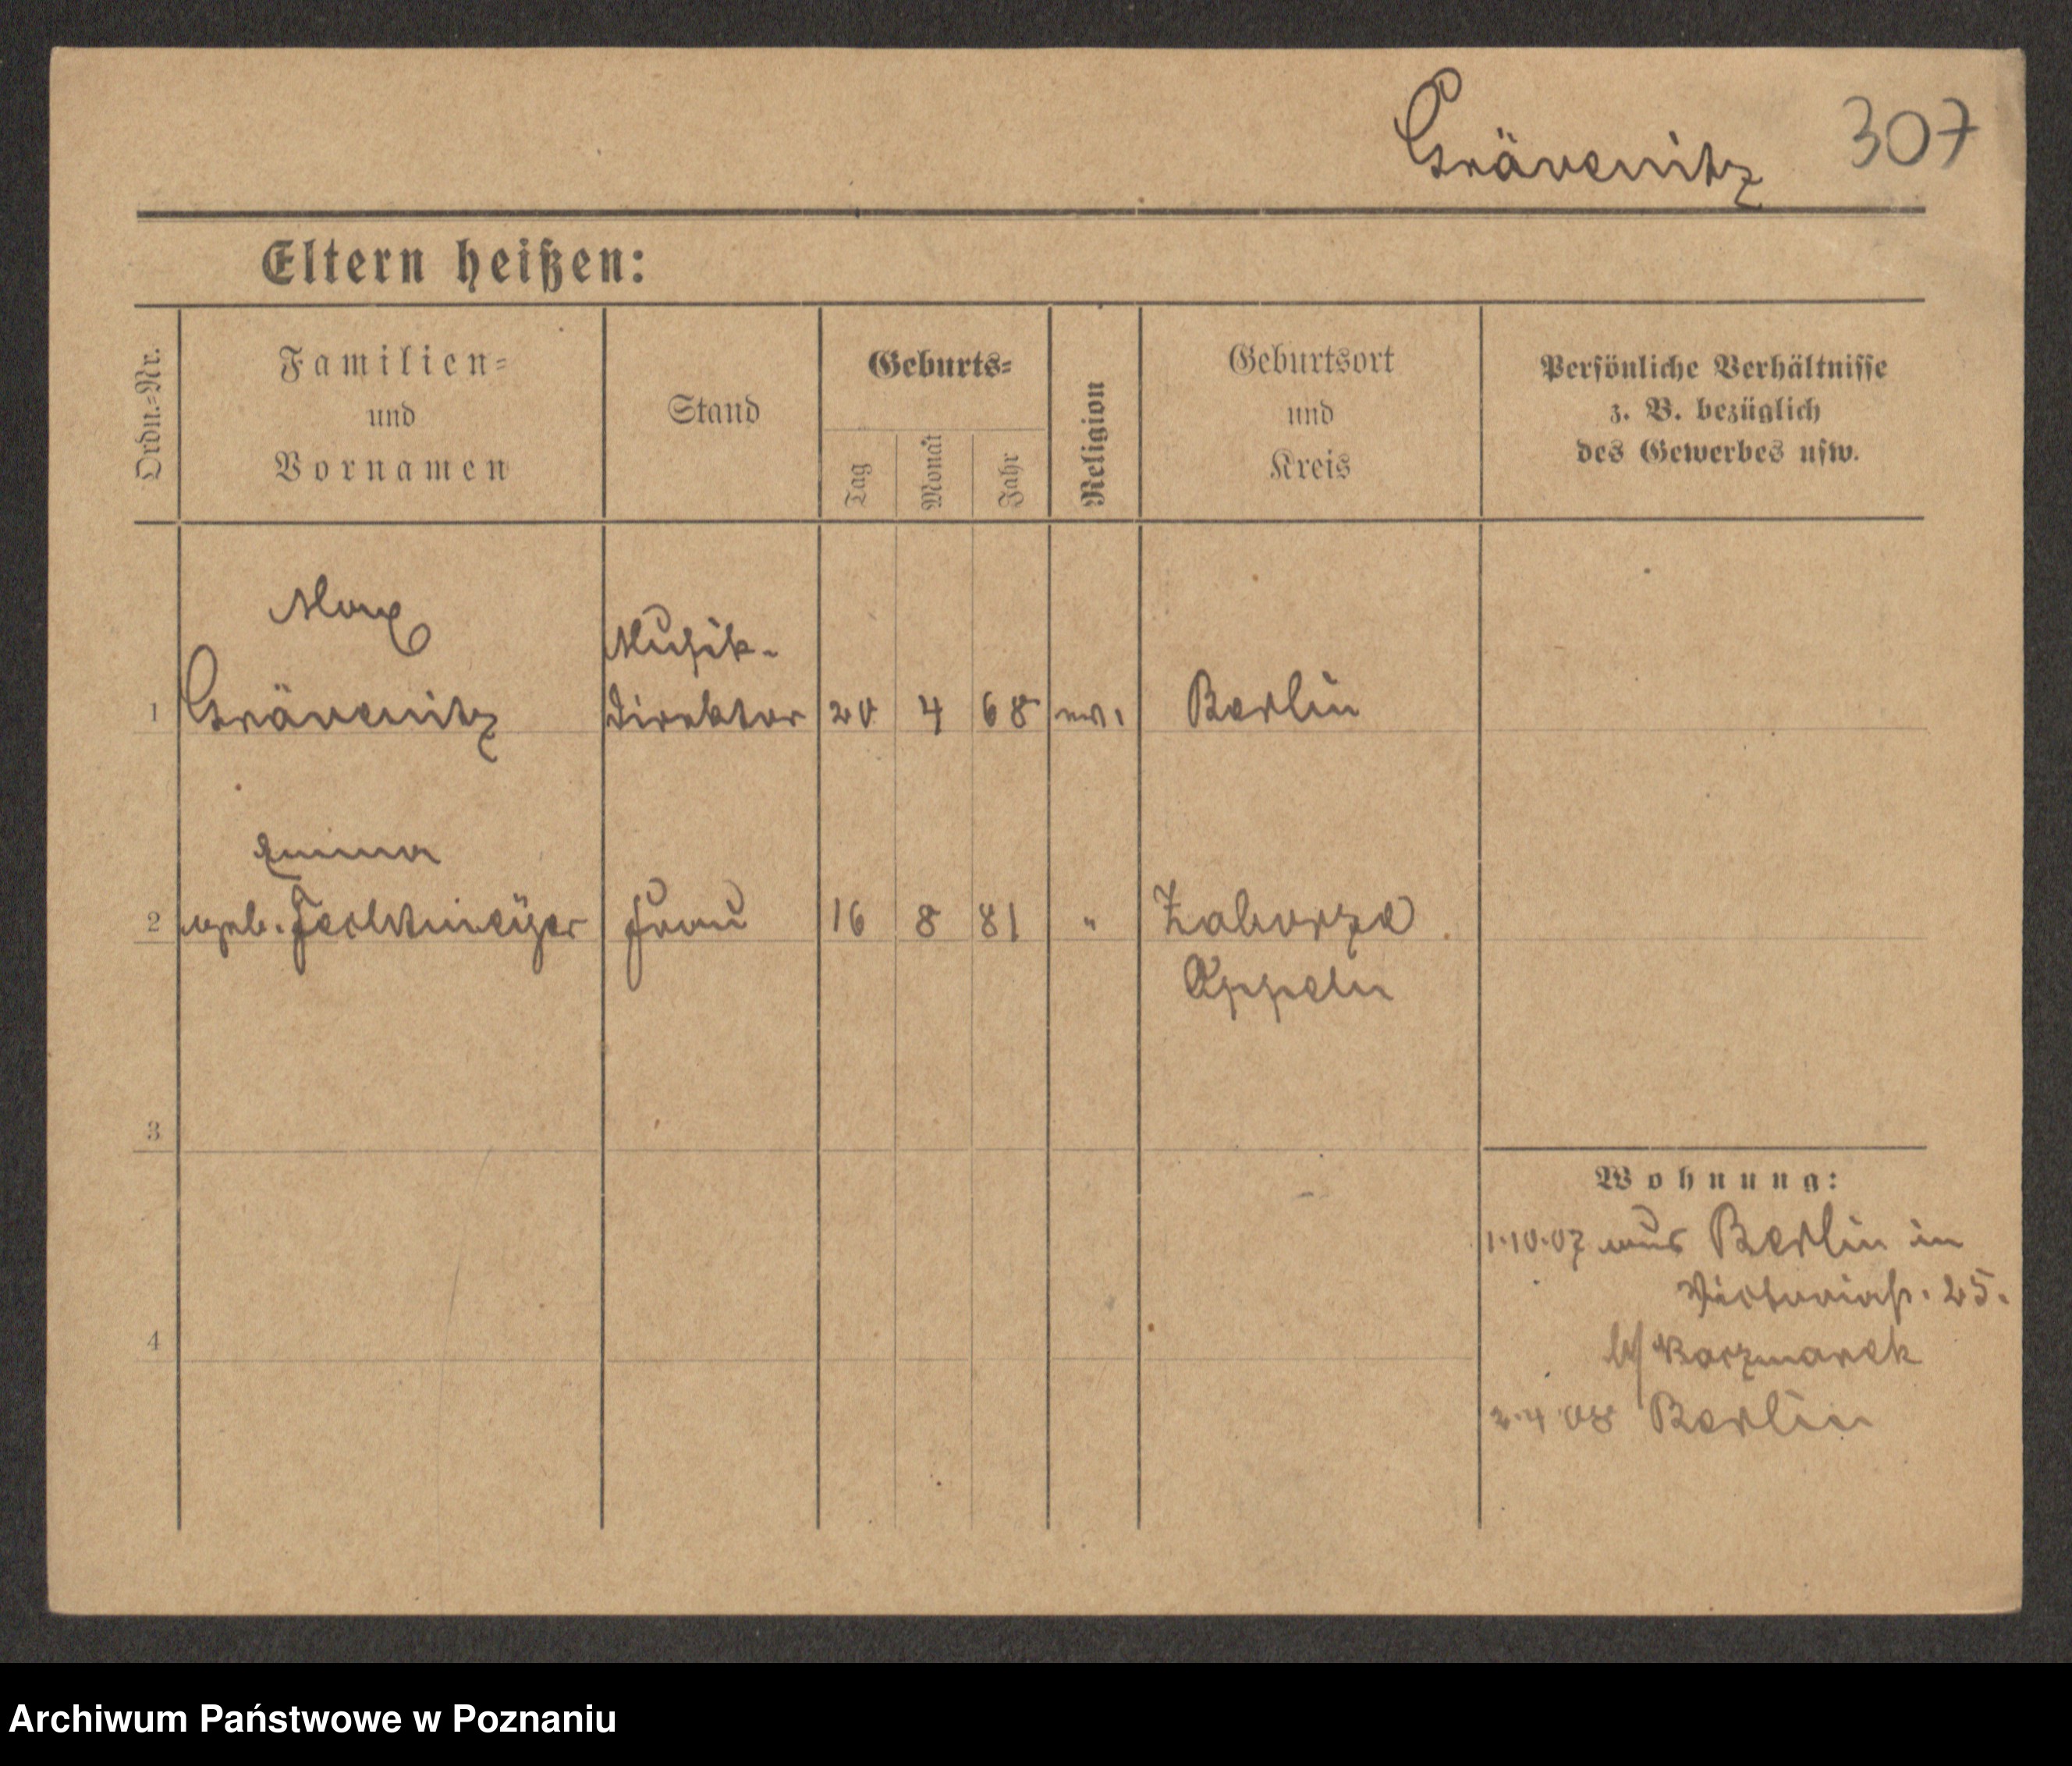 Grävenitz 307
Eltern heißen:
Ordn.-Nr.
Familien-
und
Vornamen
Stand
Geburts-
Tag
Monat
Jahr
Religion
Geburtsort
und
Kreis
Persönliche Verhältnisse
z. B. bezüglich
des Gewerbes usw.
Max
Musik-
1 Grävenitz direktor 20 4 68 ev. Berlin
Emma
2 geb. Frau 16 8 81 " Zaborze
Oppeln
3
Wohnung:
1.10.07 aus Berlin in
Victoriastr. 25.
4
b/ Kaczmarek
2.4.08 Berlin
Archiwum Państwowe w Poznaniu